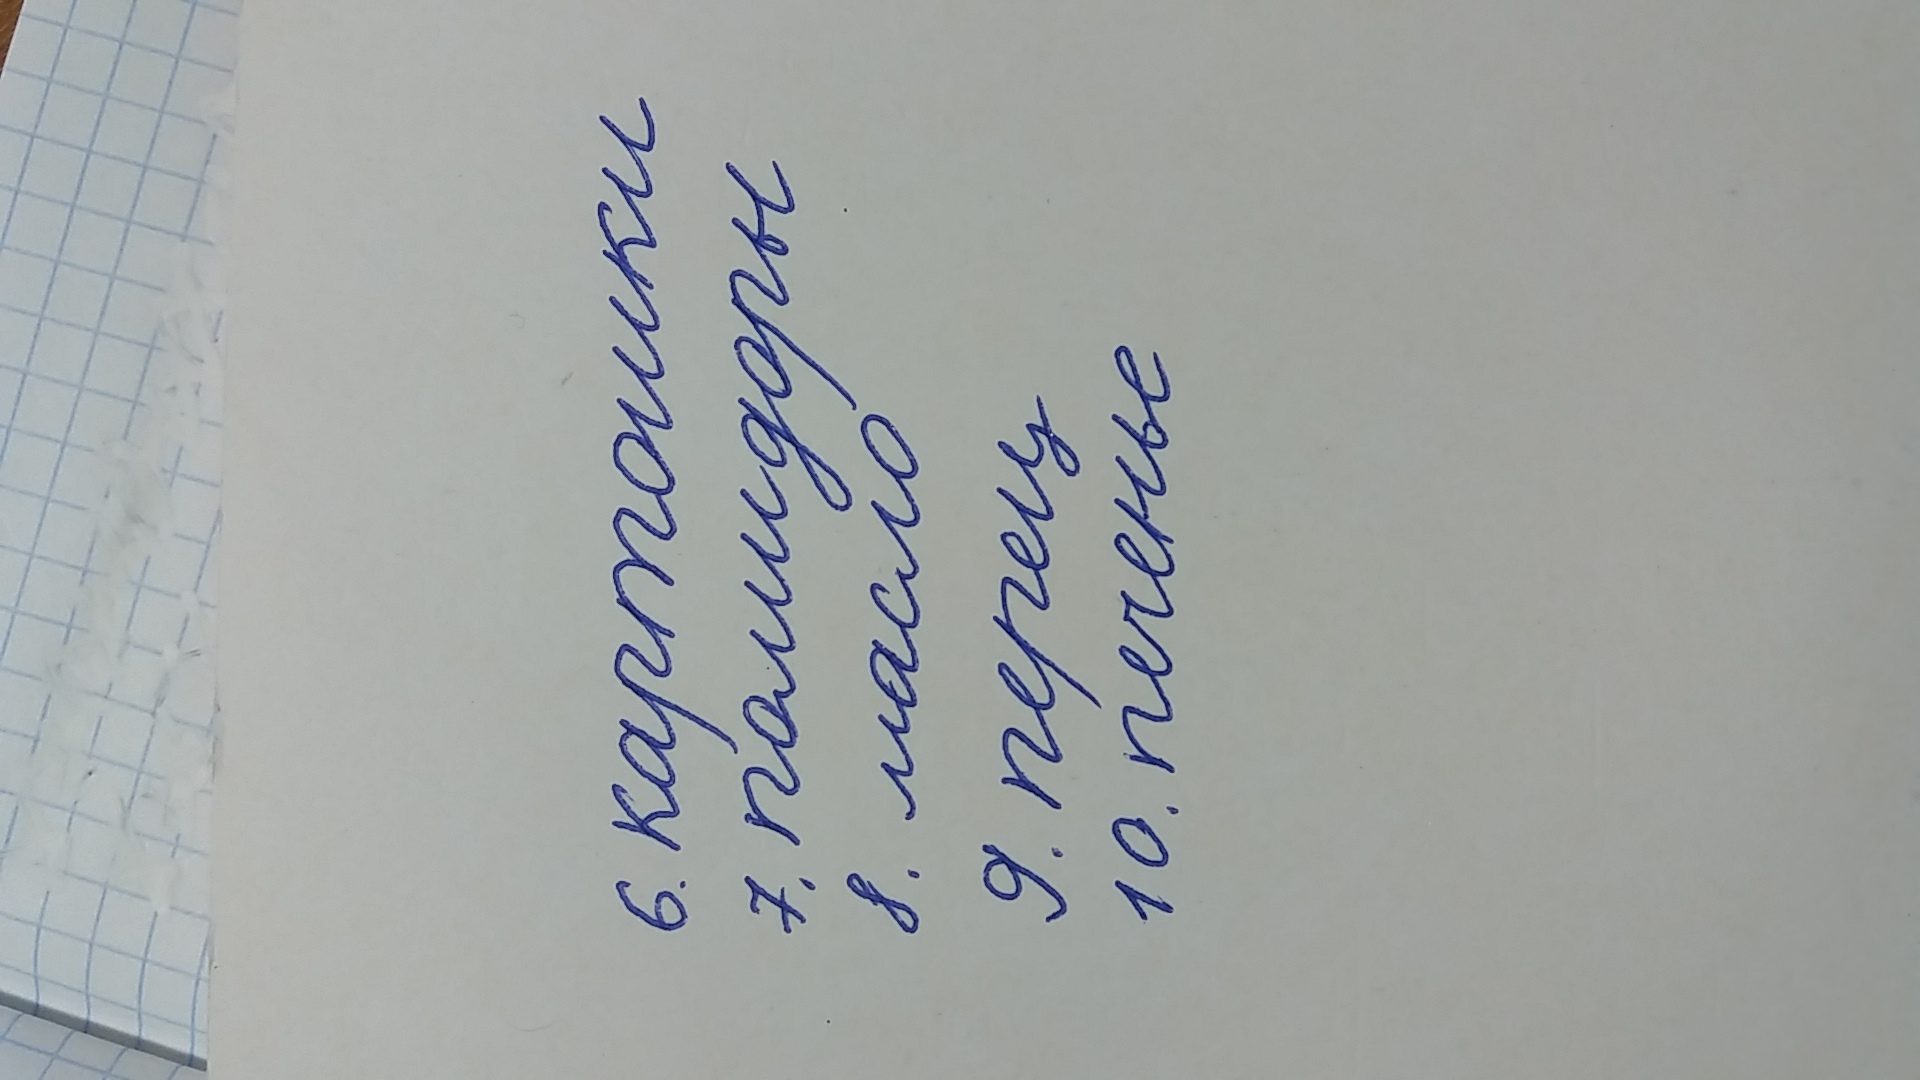 6. картошки
7. помидоры
8. масло
9. перец
10. печенье